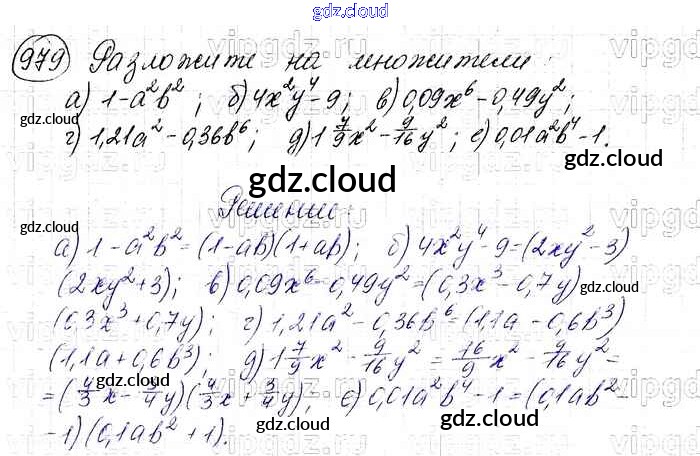 gdz.cloud
979 Разложите на множители:
а) 1-a²b²; б) 4x²y⁴-9; в) 0,09x⁶-0,49y²;
г) 1,21a²-0,36b⁶; д) 1 7/9 x² - 9/16 y²; е) 0,01a²b⁴-1.
gdz.cloud
Решение:
а) 1-a²b² = (1-ab)(1+ab); б) 4x²y⁴-9=(2xy²-3)
(2xy²+3); в) 0,09x⁶-0,49y²=(0,3x³-0,7y)
gdz.cloud
(0,3x³+0,7y); г) 1,21a²-0,36b⁶=(1,1a-0,6b³)
(1,1a+0,6b³) д) 1 7/9 x² - 9/16 y² = 16/9 x² - 9/16 y² =
=(4/3 x - 3/4 y)(4/3 x + 3/4 y); е) 0,01a²b⁴-1=(0,1ab²-
gdz.cloud
-1)(0,1ab²+1).